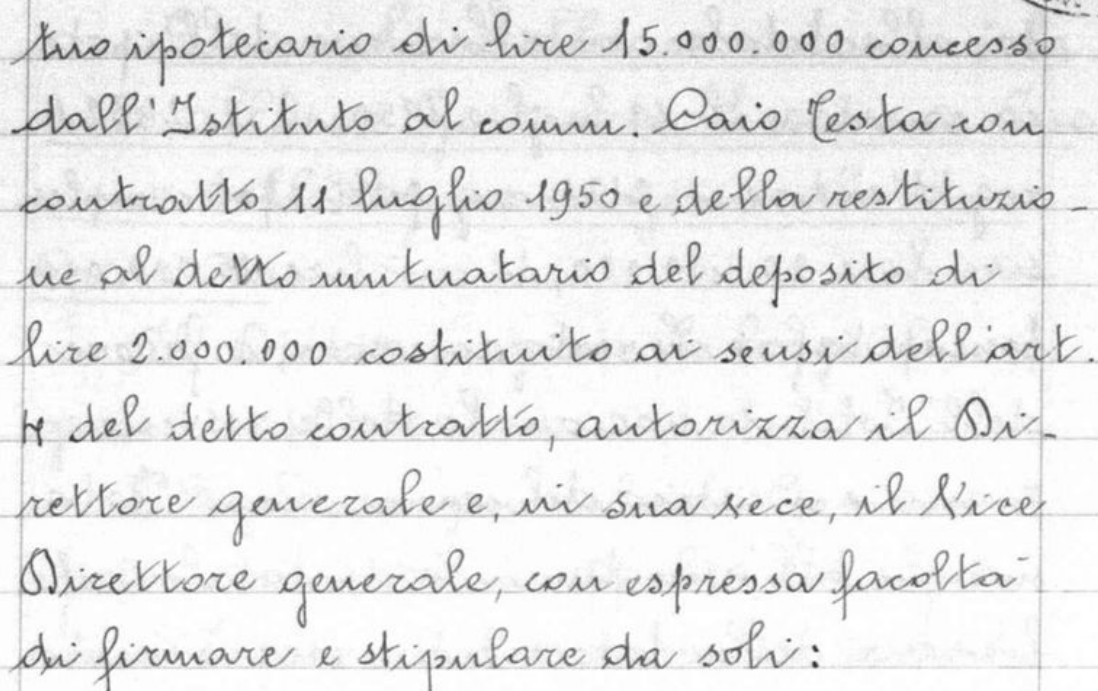 tuo ipotecario di lire 15.000.000 concesso
dall'Istituto al comm. Caio Testa con
contratto 11 luglio 1950 e della restituzio-
ne al detto mutuatario del deposito di
lire 2.000.000 costituito ai sensi dell'art.
4 del detto contratto, autorizza il Di-
rettore generale e, in sua vece, il Vice
Direttore generale, con espressa facoltà
di firmare e stipulare da soli: